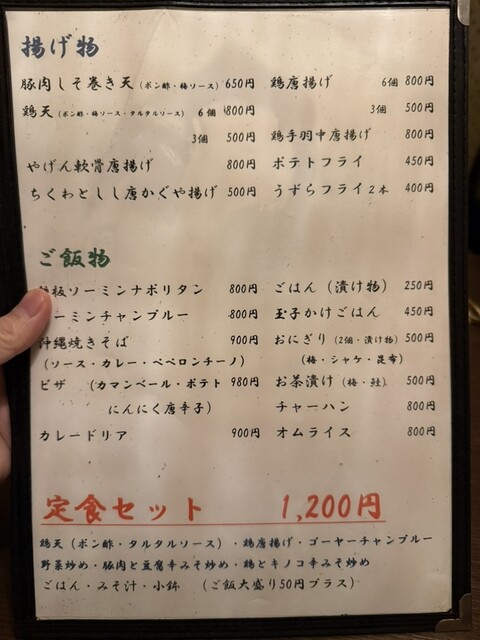 揚げ物
豚肉しそ巻き天(ポン酢・梅ソース) 650円
鶏天(ポン酢・梅ソース・タルタルソース) 6個 800円
3個 500円
やげん軟骨唐揚げ 800円
ちくわとしし唐かぐや揚げ 500円
鶏唐揚げ 6個 800円
3個 500円
鶏手羽中唐揚げ 800円
ポテトフライ 450円
うずらフライ2本 400円
ご飯物
板ソーミンナポリタン 800円
ーミンチャンプルー 800円
沖縄焼きそば 900円
(ソース・カレー・ペペロンチーノ)
ピザ (カマンベール・ポテト 980円
にんにく唐辛子)
カレードリア 900円
ごはん (漬け物) 250円
玉子かけごはん 450円
おにぎり (2個・漬け物) 500円
(梅・シャケ・昆布)
お茶漬け (梅・鮭) 500円
チャーハン 800円
オムライス 800円
定食セット 1,200円
鶏天(ポン酢・タルタルソース)・鶏唐揚げ・ゴーヤーチャンプルー
野菜炒め・豚肉と豆腐辛みそ炒め・鶏とキノコ辛みそ炒め
ごはん・みそ汁・小鉢 (ご飯大盛り50円プラス)